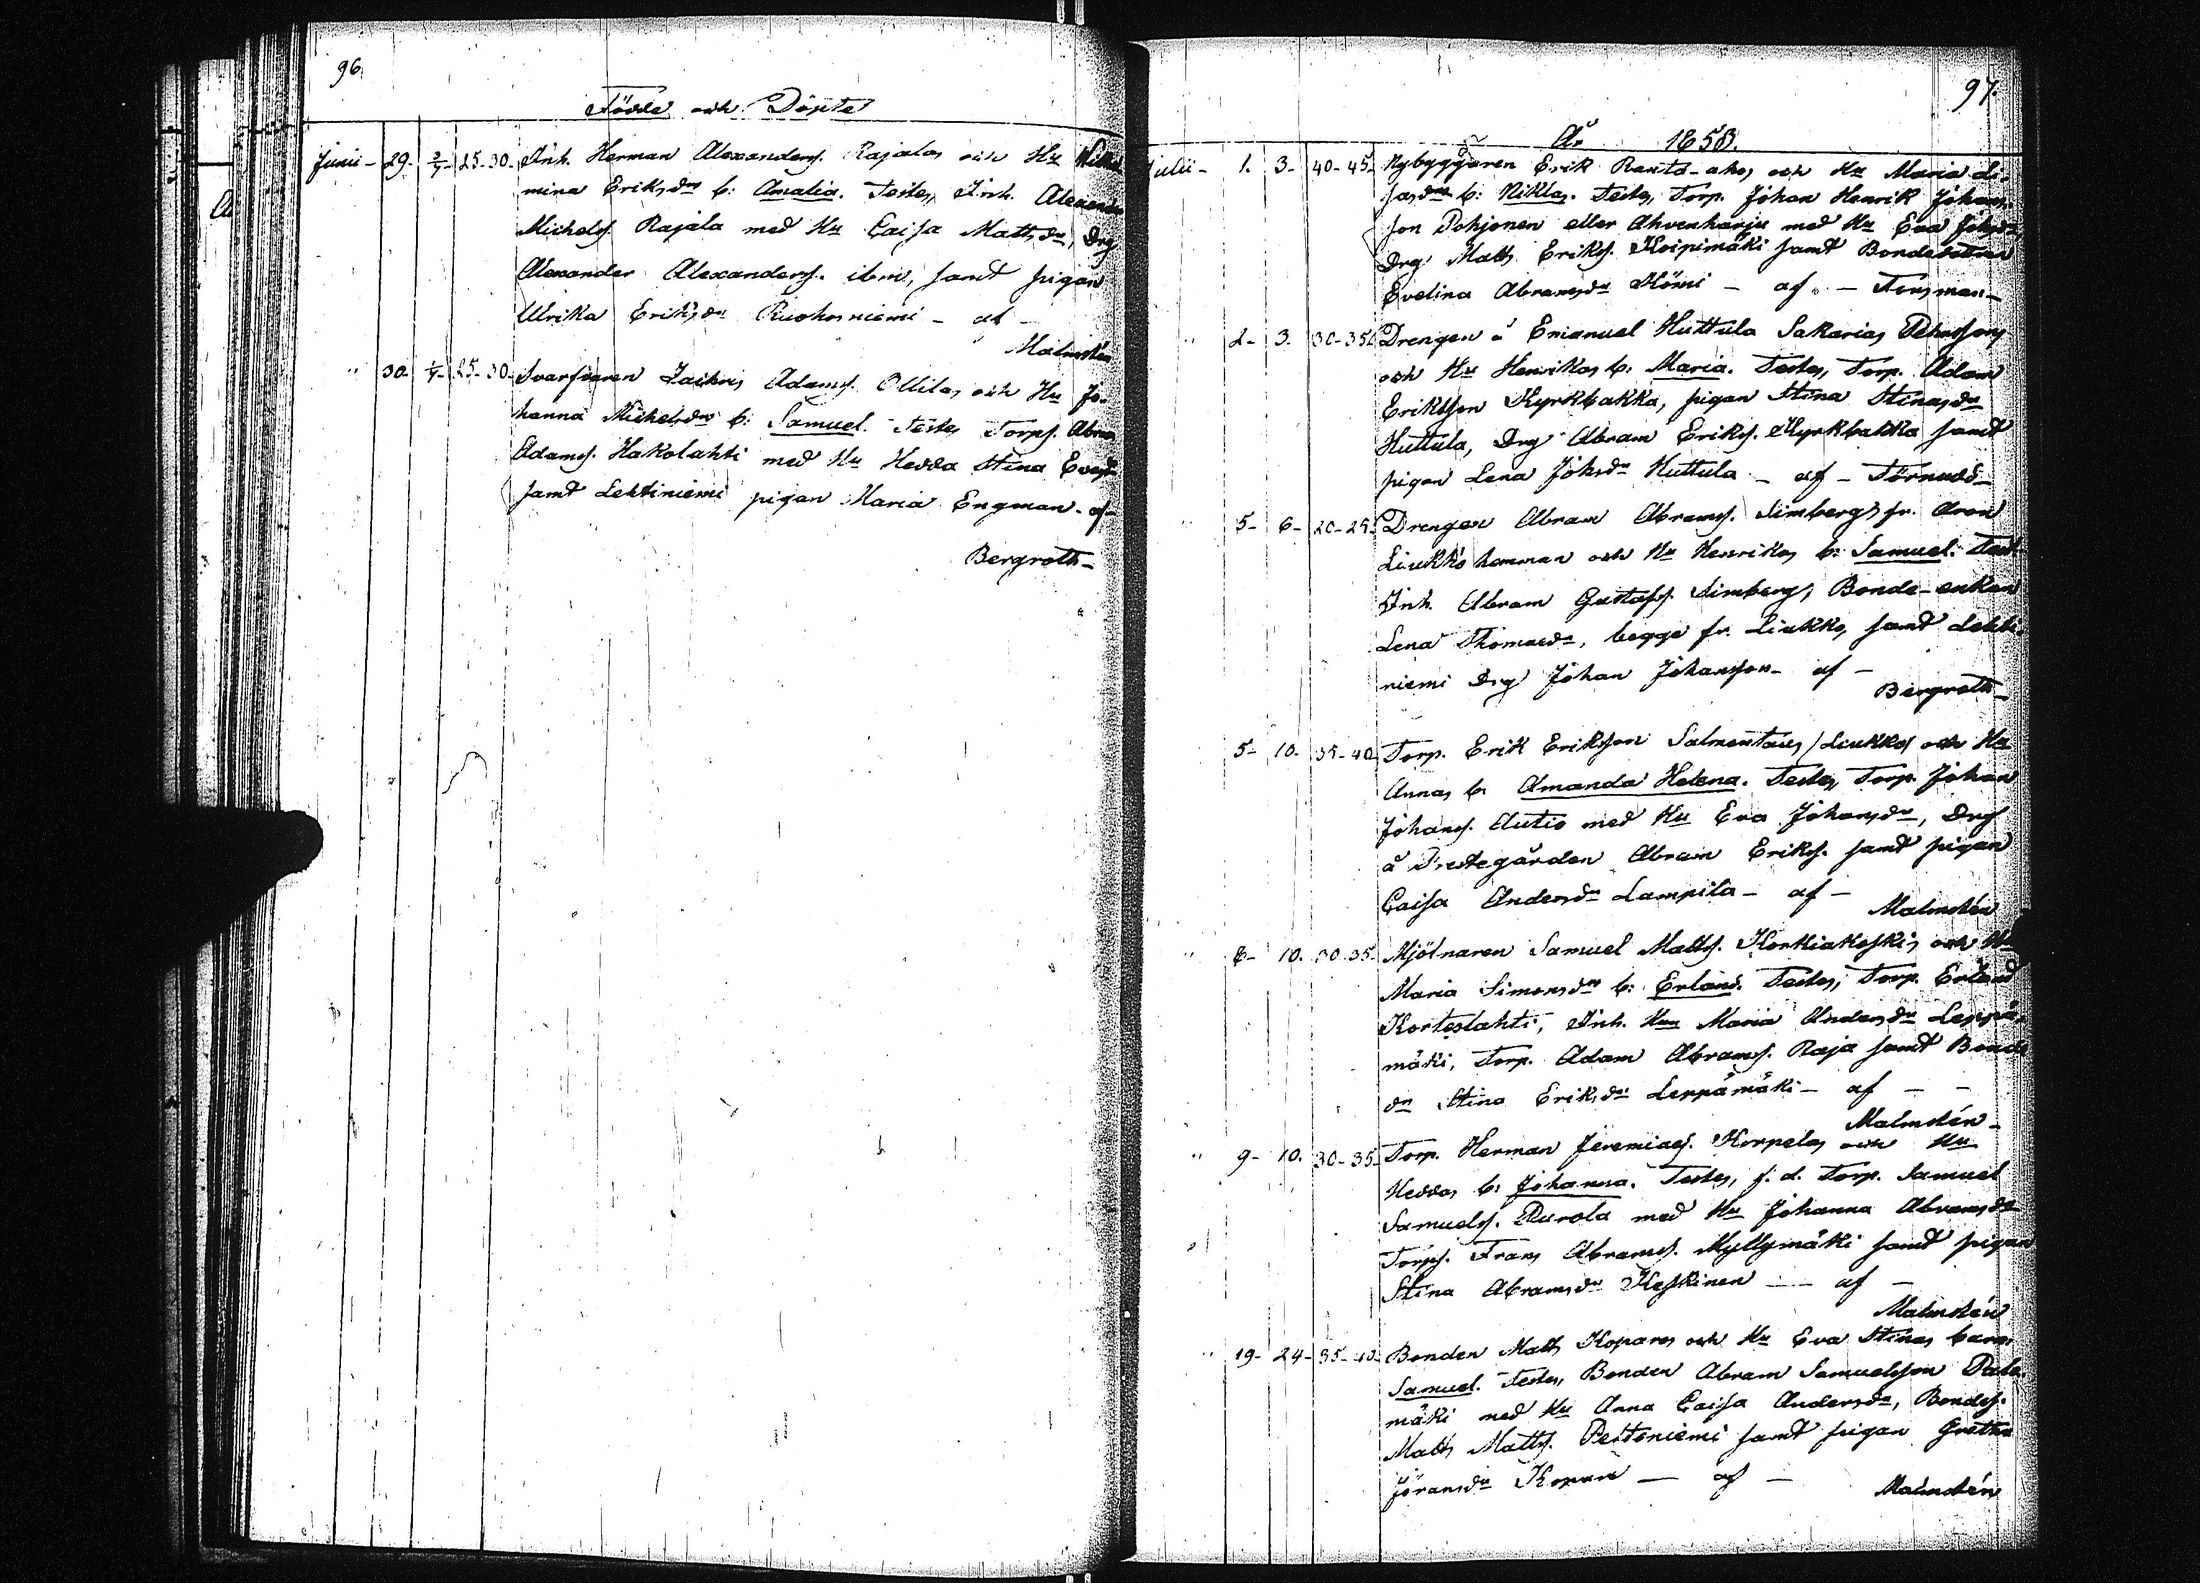 96.
Födde och Döpte
Junii - 29. 2/7 25-30. Inh. Herman Alexanderss. Rajalas och Hu Wilhel
mina Eriksdrs b: Amalia. Testes, Inh. Alexander
Michelss. Rajala med Hu Caisa Mattsdr, Drg
Alexander Alexanderss. ibm, samt pigan
Ulrika Eriksdr Ruohoniemi - af -
Malmstén
" 30. 4/7 25-30. Svarfvaren Zachris Adamss. Ollilas och Hu Jo-
hanna Michelsdrs b: Samuel. Testes Torps. Abra
Adamss. Hakolahti med Hu Hedda Stina Evasdr
samt Lehtiniemi pigan Maria Engman - af -
Bergroth -
97.
År 1858.
Julii - 1. 3. 40-45. Nybyggaren Erik Rento-ahos och Hu Maria Li-
sasdrs b: Niklas. Testes, Torp. Johan Henrik Johans-
son Pohjonen eller Ahvenharju med Hu Eva Johsdr
Drg Matts Erikss. Koipimäki samt Bondedottren
Evelina Abramsdr Hömi - af - Forsman -
" 2. 3. 30-35. Drengen å Emanuel Huttula Sakarias Pehrssons
och Hu Henrikas b: Maria. Testes, Torp. Adam
Eriksson Kyrkbakka, pigan Stina Stinasdr
Huttula, Drg Abram Erikss. Kyrkbakka samt
pigan Lena Johsdr Huttula - af - Törnudd -
" 5. 6. 20-25. Drengen Abram Abramss. Simbergs fr. Aron
Liukko hemman och Hu Henrikas b: Samuel. Test.
Inh. Abram Gustafss. Simberg, Bonde-enkan
Lena Thomasdr, begge fr. Liukko, samt Lehti-
niemi Drg Johan Johansson - af -
Bergroth -
5. 10. 35-40. Torp. Erik Eriksson Salmentaus /Liukko/ och Hu
Annas b: Amanda Helena. Testes, Torp. Johan
Johanss. Autio med Hu Eva Johansdr, Drg
å Prestegården Abram Erikss. samt pigan
Caisa Andersdr Lampila - af -
Malmstén
" 8. 10. 30-35. Mjölnaren Samuel Mattss. Korkiakoskis och Hu
Maria Simonsdrs b: Erland. Testes, Torp. Erland
Korteslahti, Inh. Hu Maria Andersdr Leppä-
mäki, Torp. Adam Abramss. Raja samt Bonde
dr Stina Eriksdr Leppämäki - af - -
Malmstén -
" 9. 10. 30-35. Torp. Herman Jeremiass. Korpelas och Hu
Heddas b: Johanna. Testes, f. d. Torp. Samuel
Samuelss. Purola med Hu Johanna Abramsdr
Torps. Frans Abramss. Myllymäki samt pigan
Stina Abramsdr Keskinen - af -
Malmstén
" 19. 24. 35-40. Bonden Matts Kopares och Hu Eva Stinas barn
Samuel. Testes, Bonden Abram Samuelsson Palo
mäki med Hu Anna Caisa Andersdr, Bondes.
Matts Mattss. Peltoniemi samt pigan Gretha
Göransdr Kopare - af -
Malmstén